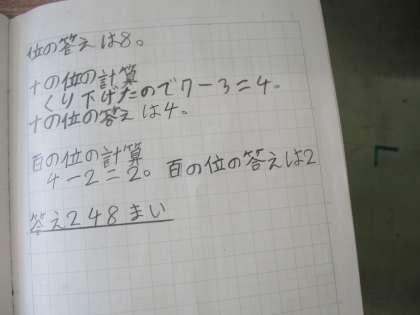 位の答えは8。
十の位の計算
くり下げたので7-3=4。
十の位の答えは4。
百の位の計算
4-2=2。百の位の答えは2
答え248まい